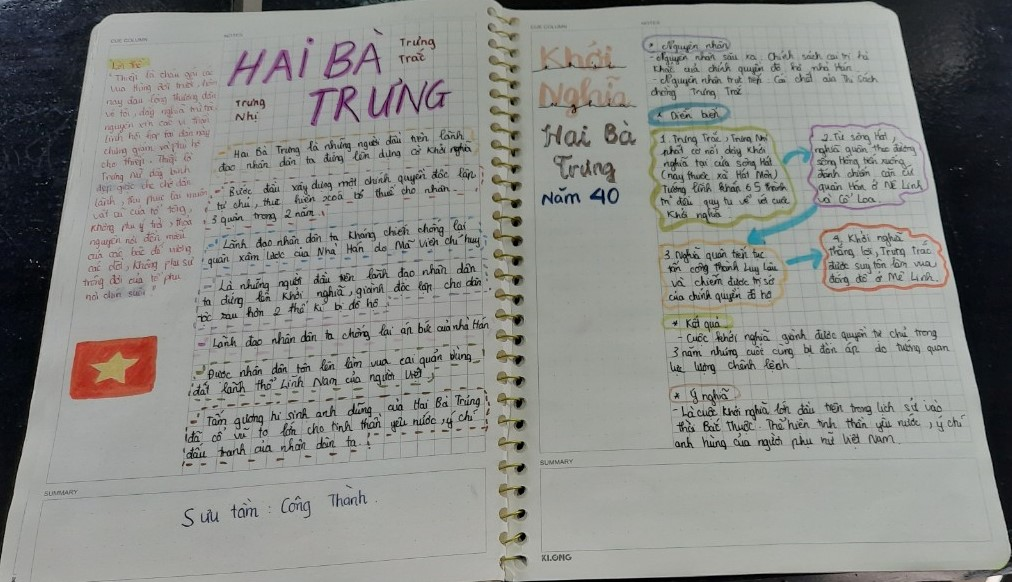 CUE COLUMN
NOTES
HAI BÀ
TRƯNG
Trưng
Trắc
Trưng
Nhị
Lời thề
"Thiếp là cháu gái các
vua Hùng đời trước, hôm
nay đau lòng thương dân
vô tội, dấy nghĩa trừ tà
nguyện xin các vị thần
linh hội họp tại đàn này
chứng giám và phù hộ
cho thiếp. Thiếp là
Trưng nữ dấy binh
dẹp giặc che chở dân
lành, thu phục lại muôn
vật cũ của tổ tông,
không phụ ý trời, thỏa
nguyện nơi đền miếu
của các bậc đế vương
các đời, không phụ sự
trông đợi của tổ phụ
nơi chín suối"
Hai Bà Trưng là những người đầu tiên lãnh
đạo nhân dân ta đứng lên dựng cờ khởi nghĩa
- Bước đầu xây dựng một chính quyền độc lập
tự chủ, thực hiện xoá tô thuế cho nhân
3 quận trong 2 năm.
Lãnh đạo nhân dân ta kháng chiến chống lại
quân xâm lược của Nhà Hán do Mã Viện chỉ huy
- Là những người đầu tiên lãnh đạo nhân dân
ta đứng lên khởi nghĩa, giành độc lập cho dân
tộc sau hơn 2 thế kỉ bị đô hộ
- Lãnh đạo nhân dân ta chống lại áp bức của nhà Hán
- Được nhân dân tôn lên làm vua cai quản vùng
đất lãnh thổ Lĩnh Nam của người Việt
- Tấm gương hi sinh anh dũng của Hai Bà Trưng
đã cổ vũ to lớn cho tinh thần yêu nước, ý chí
đấu tranh của nhân dân ta.
SUMMARY
Sưu tầm: Công Thành.
NOTES
Khởi
Nghĩa
Hai Bà
Trưng
Năm 40
* Nguyên nhân
- Nguyên nhân sâu xa: Chính sách cai trị hà
khắc của chính quyền đô hộ nhà Hán
- Nguyên nhân trực tiếp: Cái chết của Thi Sách
chồng Trưng Trắc
* Diễn biến
1. Trưng Trắc, Trưng Nhị
phất cờ nổi dậy khởi
nghĩa tại cửa sông Hát
(nay thuộc xã Hát Môn)
Tướng lĩnh khắp 65 thành
trì đều quy tụ về với cuộc
khởi nghĩa
2. Từ sông Hát,
nghĩa quân theo đường
sông Hồng tiến xuống
đánh chiếm căn cứ
quân Hán ở Mê Linh
và Cổ Loa.
3. Nghĩa quân tiếp tục
tấn công thành Luy Lâu
và chiếm được trị sở
của chính quyền đô hộ
4. Khởi nghĩa
thắng lợi, Trưng Trắc
được suy tôn làm vua
đóng đô ở Mê Linh.
* Kết quả
- Cuộc khởi nghĩa giành được quyền tự chủ trong
3 năm nhưng cuối cùng bị đàn áp do tương quan
lực lượng chênh lệch
* Ý nghĩa
- Là cuộc khởi nghĩa lớn đầu tiên trong lịch sử vào
thời Bắc Thuộc. Thể hiện tinh thần yêu nước, ý chí
anh hùng của người phụ nữ Việt Nam.
SUMMARY
KLONG